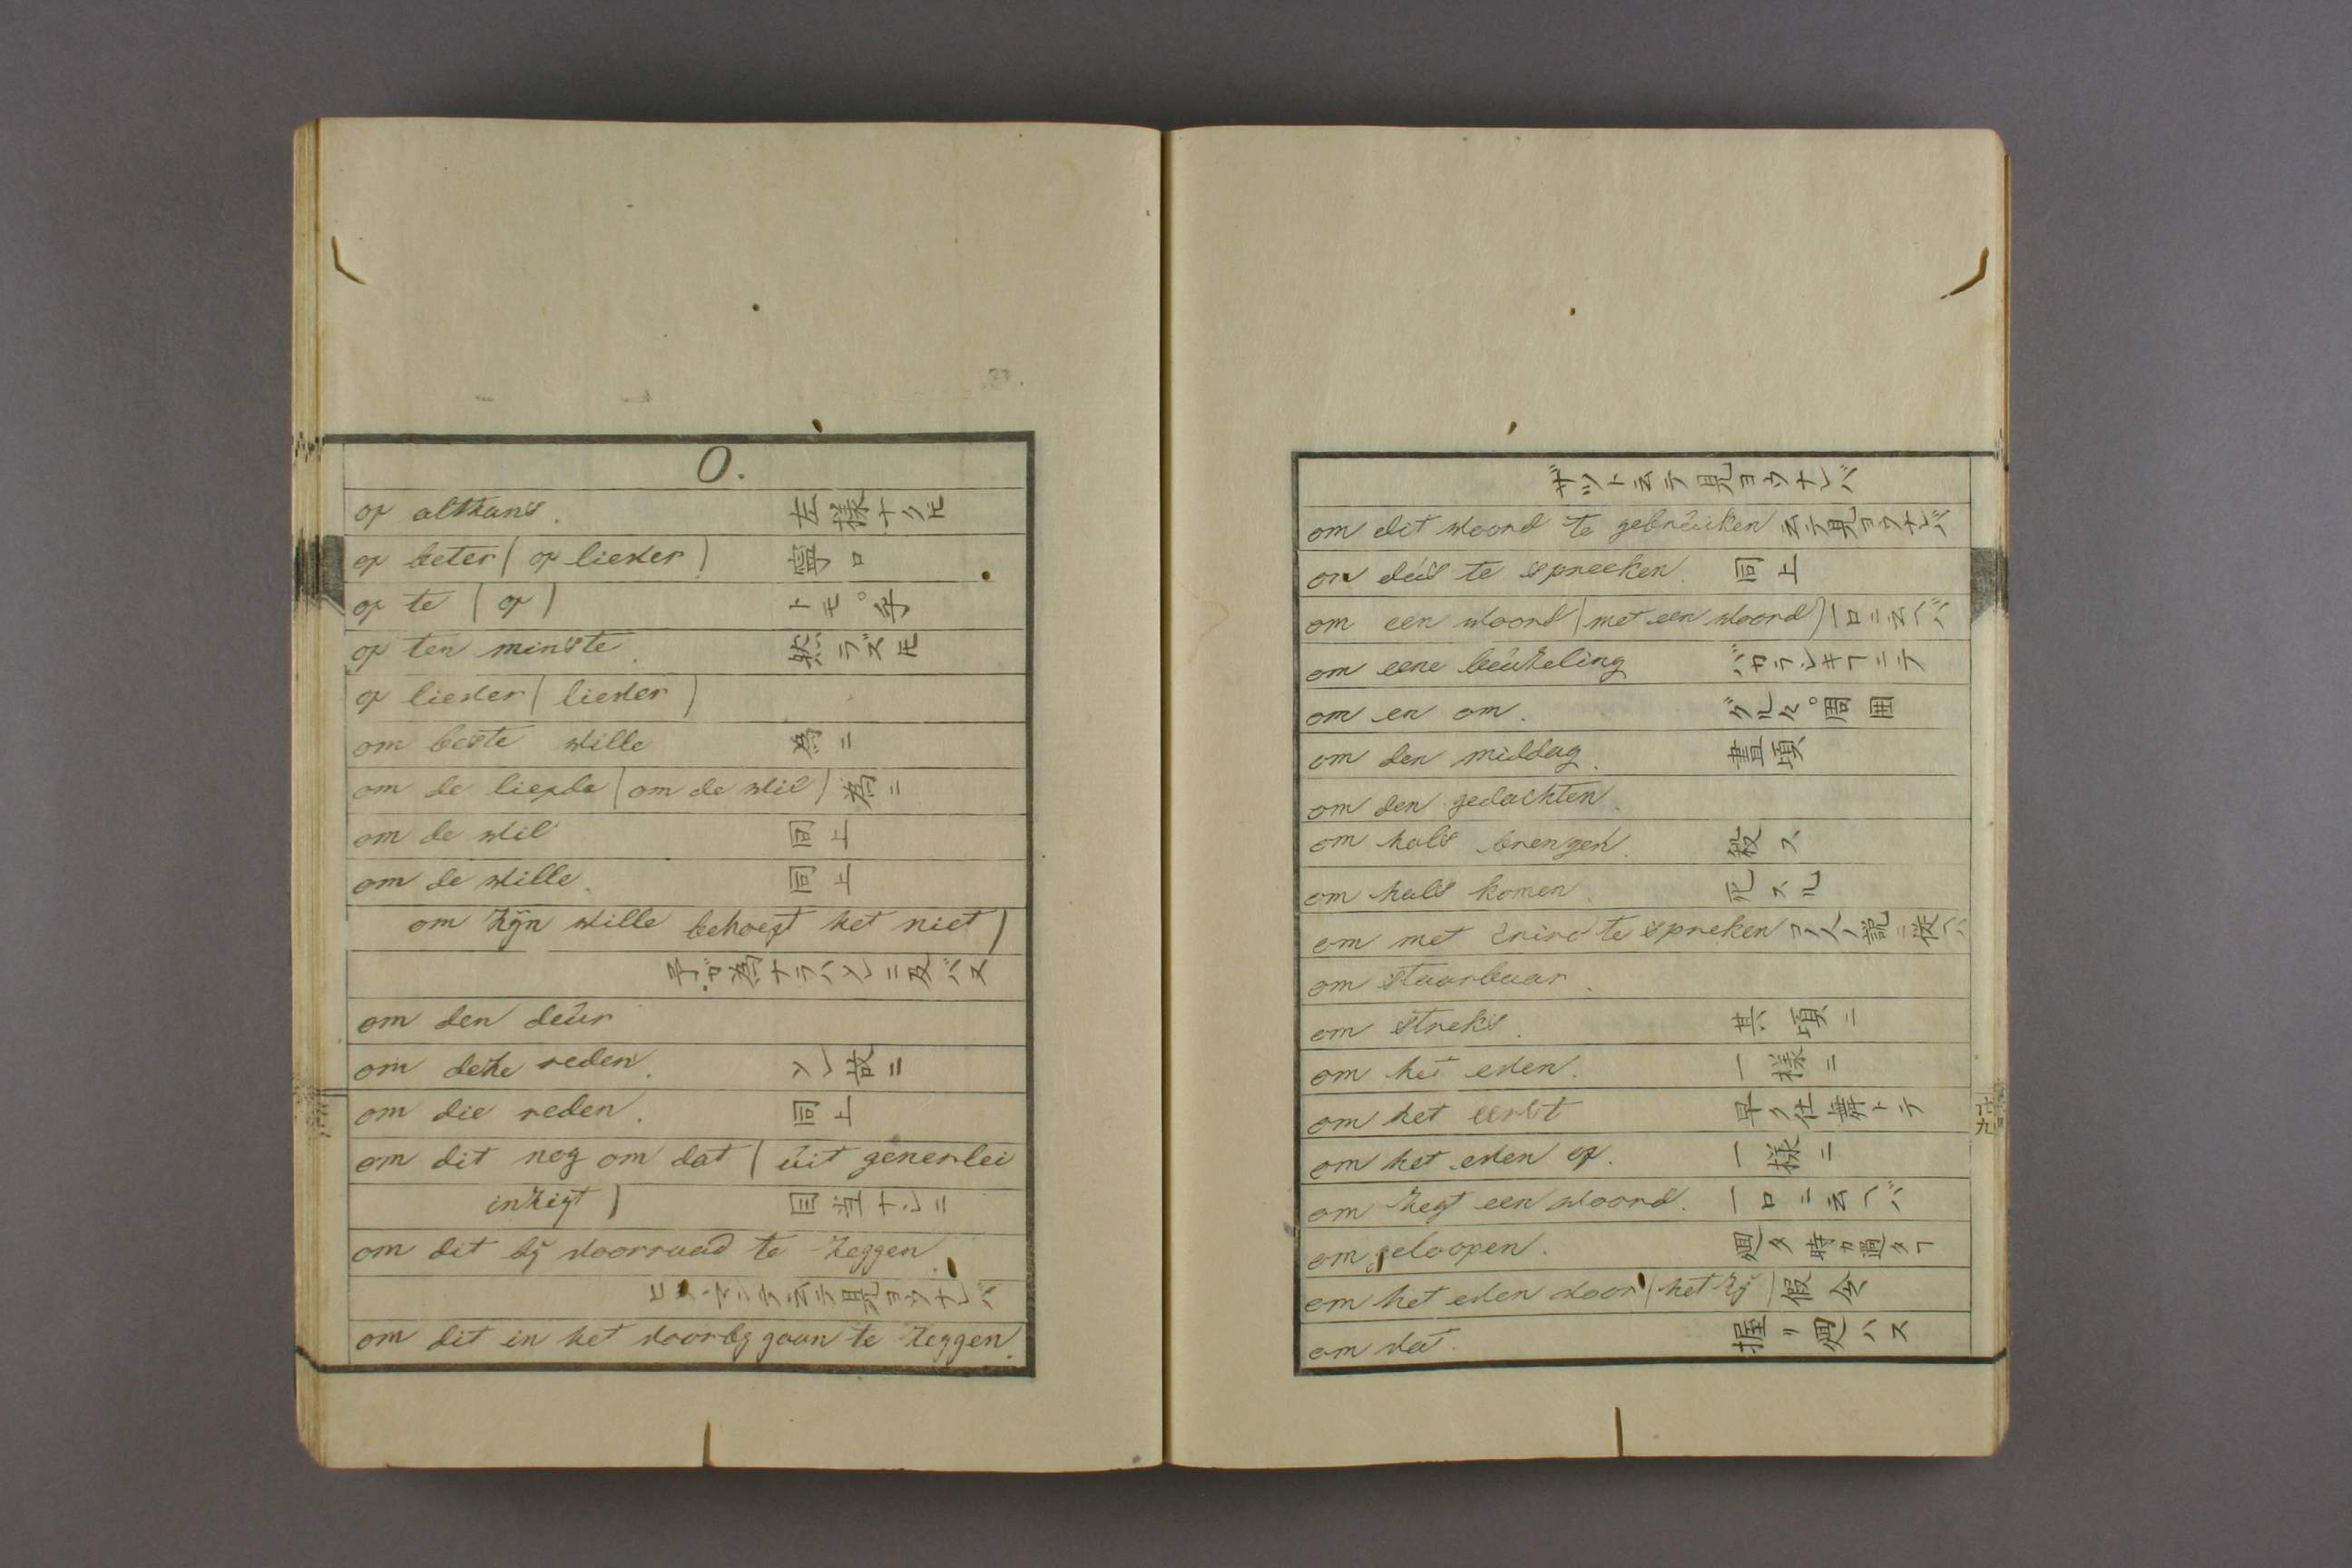 O.
of althans. 左様ナク𪜈
of beter (of liever) 寧ロ
of te (of) トモ。乎
of ten minste. 然ラズ𪜈
of liever (liever)
om beste wille 為ニ
om de liefde (om de wil) 為ニ
om de wil 同上
om de wille. 同上
om zijn wille behoeft het niet)
予ガ為ナラハソレニ及バス
om den deur
om deze reden. ソレ故ニ
om die reden. 同上
om dit nog om dat (uit generlei
inzigt) 目当ナシニ
om dit bij voorraad te zeggen.
云テ見ヨウナレバ
om dit in het voorbijgaan te zeggen.
ザット云テ見ヨウナレバ
om dit woord te gebruiken 云テ見ヨフナレバ
om dus te spreeken. 同上
om een woord (met een woord) 一口ニ云ヘバ
om eene beuzeling バカラシキフニテ
om en om. グル々。周囲
om den middag. 晝頃
om den gedachten.
om hals brengen. 殺ス
om hals komen. 死スル
om met te spreken 説ニ従ヘバ
om staarbaar.
om streks. 其頃ニ
om het even. 一様ニ
om het eerst 早ク仕舞トテ
om het even of. 一様ニ
om zegt een woord. 一口ニ云ヘバ
om geloopen. 廻タ時カ過タフ
om het even door (het zij) 假令
om vat. 握リ廻ハス
廿九